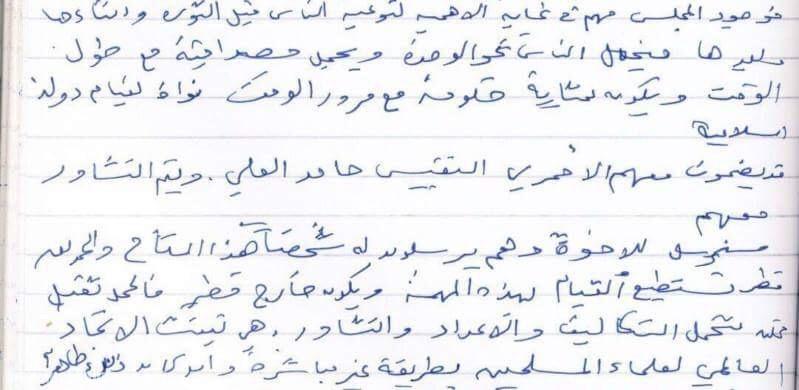 فوجود المجلس مهم في غاية الاهمية لتوعية الناس قبل الثورة واثناءها
وبعدها فيحمل الناس نحو الوحدة ويحمل مصداقية مع طول
الوقت ويكون بمثابة حكومة مع مرور الوقت نواة لقيام دولة
اسلامية
قد يضمون معهم الأحمري النفيسي حامد العلي. ويتم التشاور
معهم
سنرسل للاخوة وهم يرسلون له شخصا هذا المتاح والحمد لله
قطر تستطيع القيام بهذه المهمة ويكون خارج قطر فالمحل تقبل
بتحمل التكاليف والاعداد والتشاور، هي تبنت الاتحاد
العالمي لعلماء المسلمين بطريقة غير مباشرة